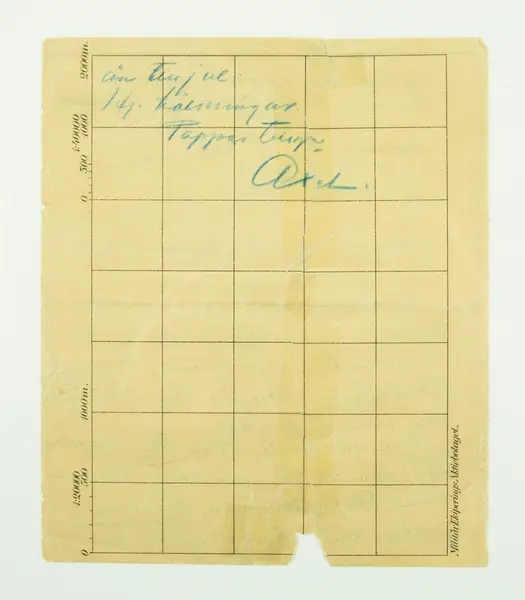 än till jul.
Hj. hälsningar.
Pappas
Axel.
2000 m.
1:40000
1000
500
0
1000 m.
1:20000
500
0
Militär Ekiperings Aktiebolaget.